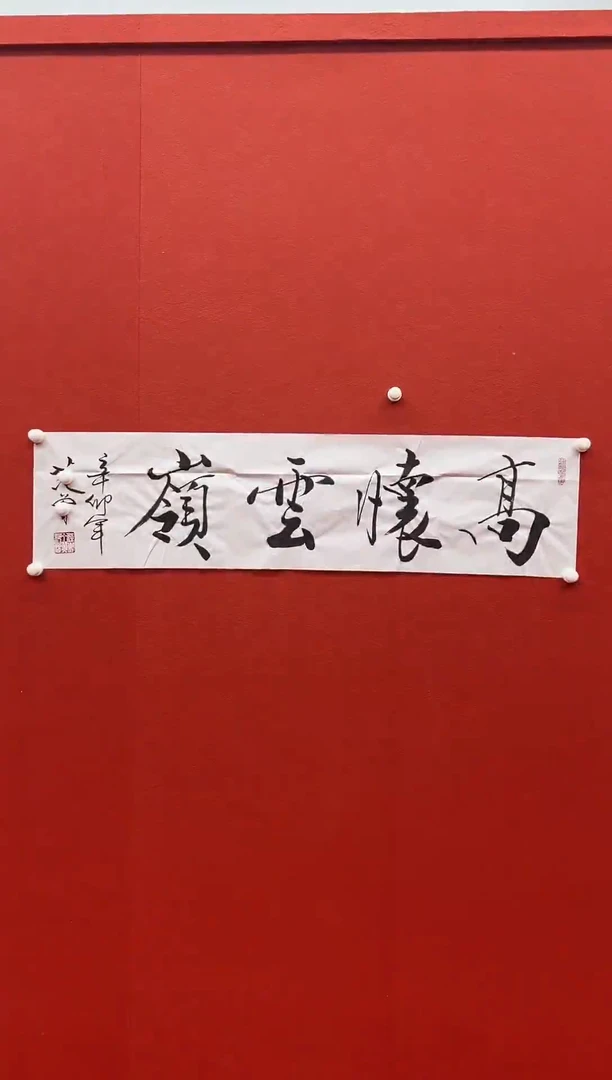 高懷雲嶺
辛卯年